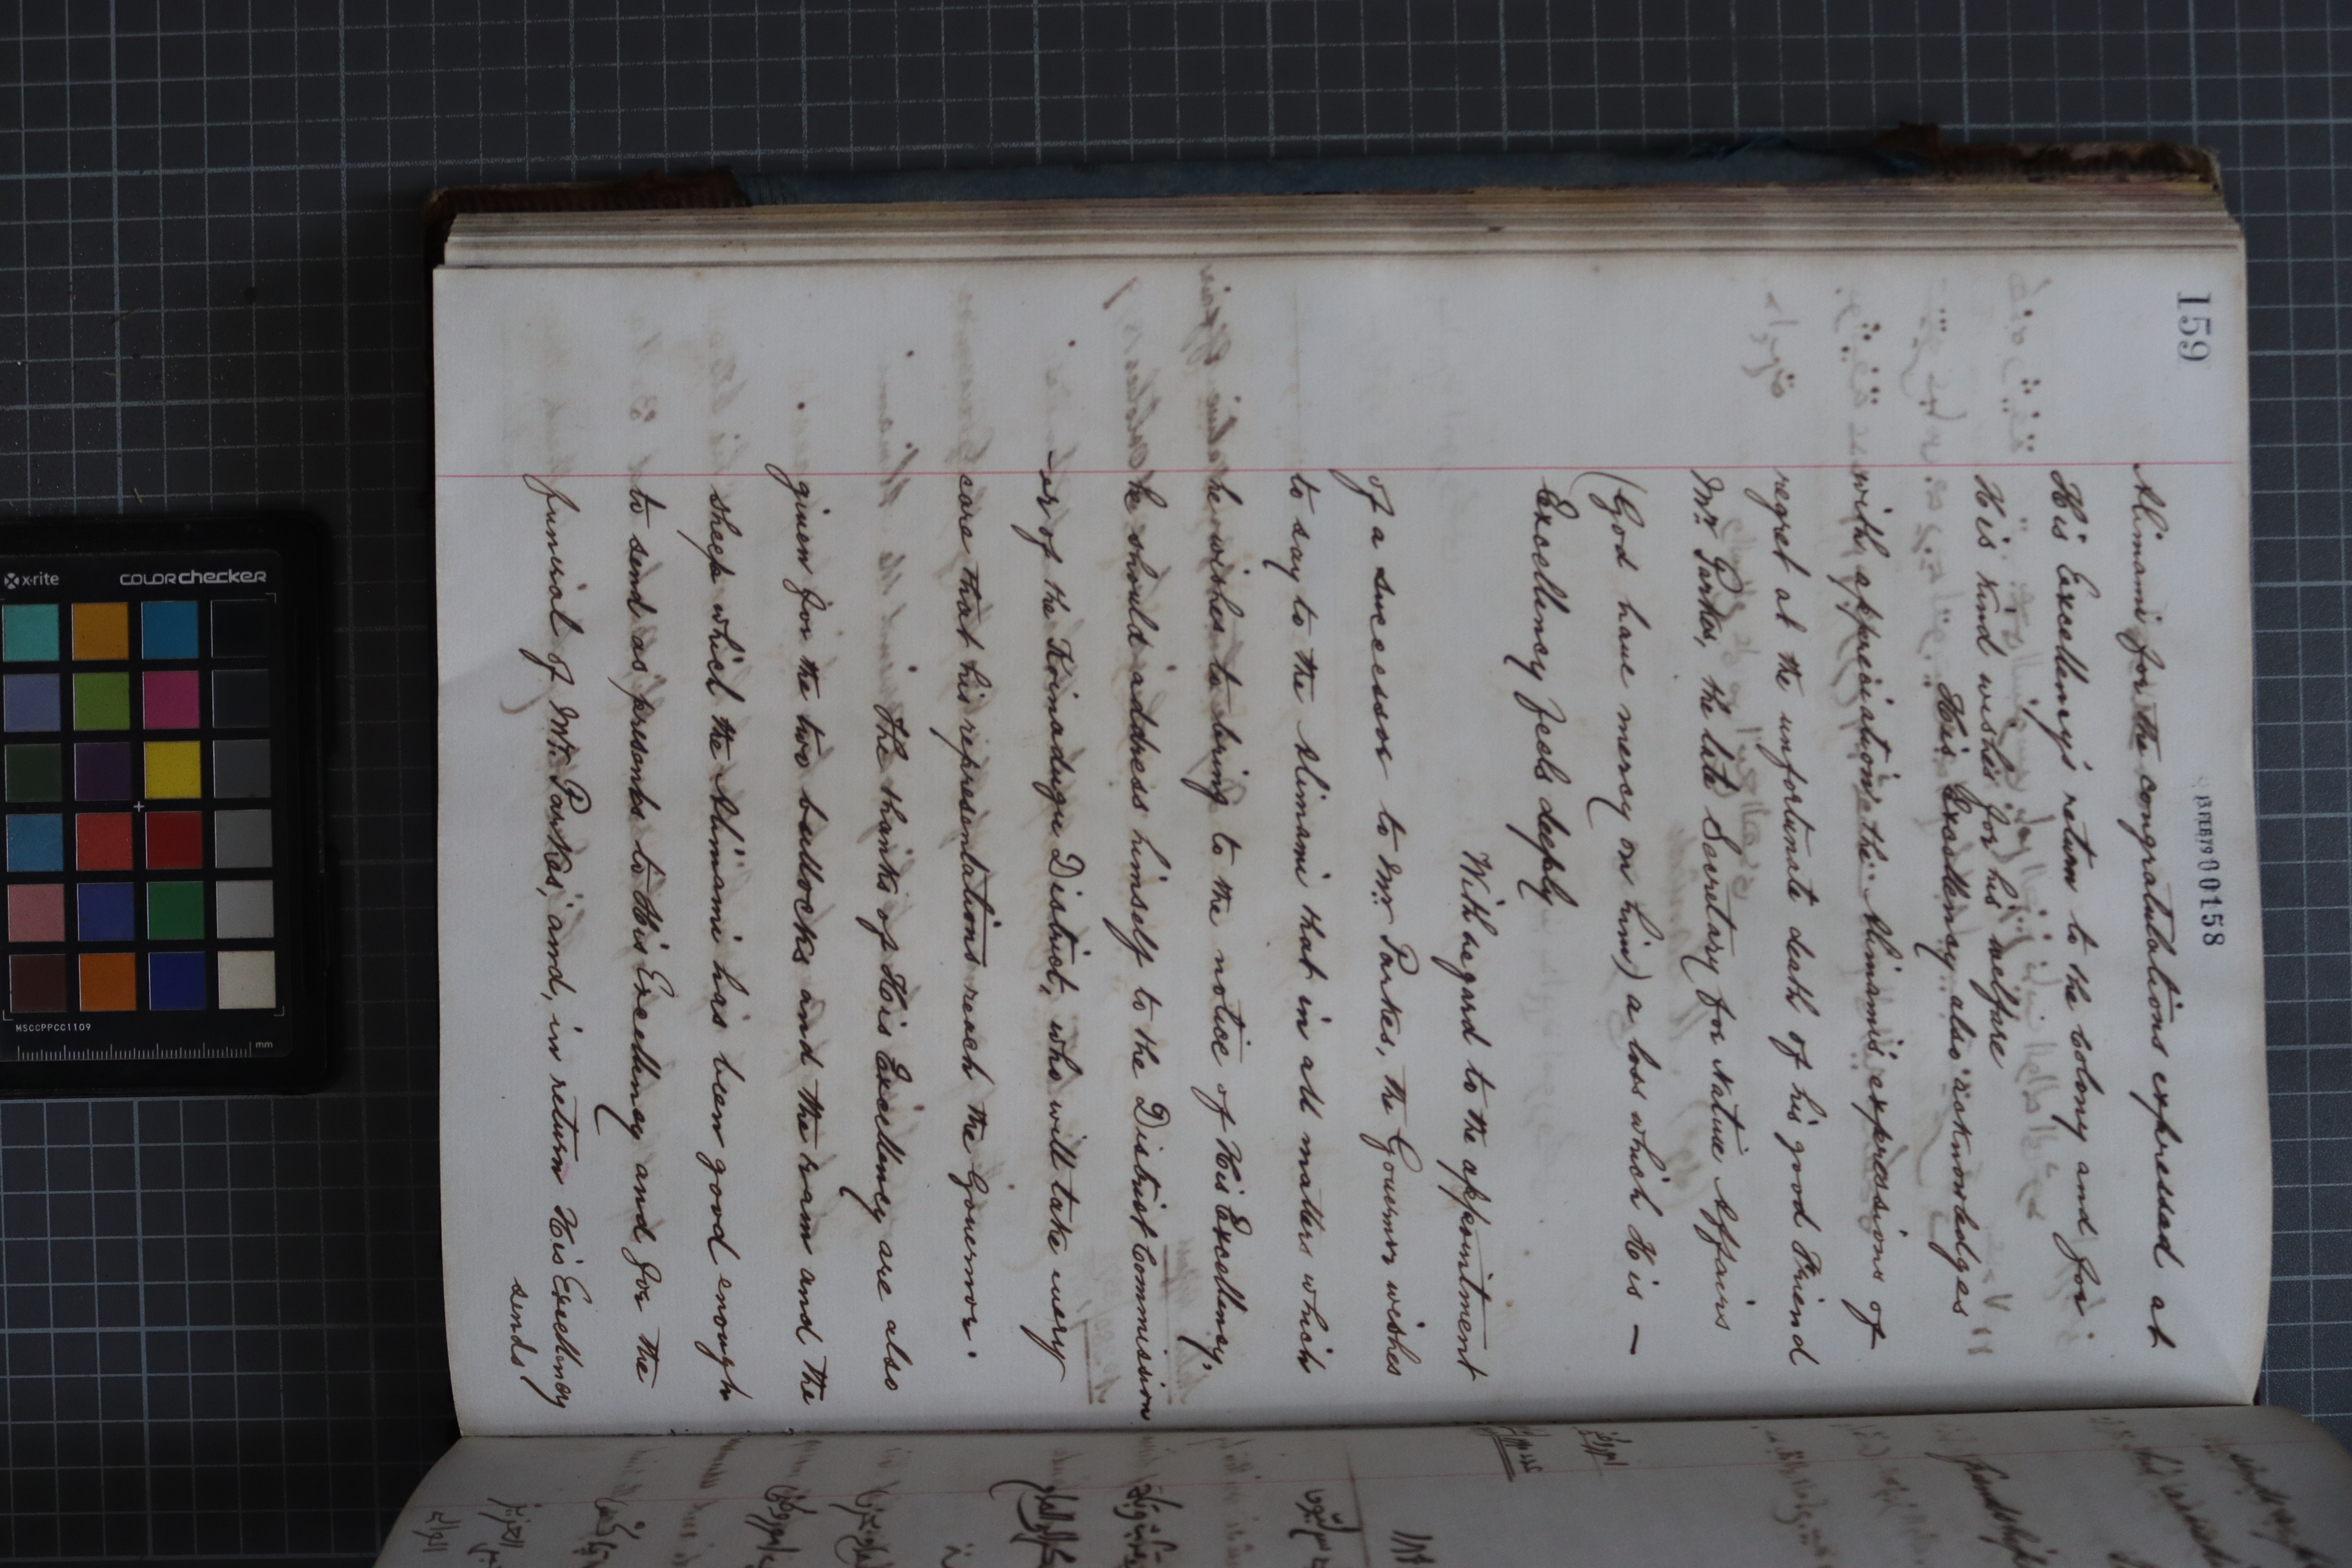 159
13 FEB 79 00158
Alimami for the congratulations expressed at
His Excellency's return to the Colony and for
His kind wishes for his welfare
His Excellency also acknowledges
with appreciation the Alimami's expressions of
regret at the unfortunate death of his good Friend
Mr. Parkes, the late Secretary for Native Affairs
(God have mercy on him) a loss which His —
Excellency feels deeply
With regard to the appointment
of a successor to Mr. Parkes, the Governor wishes
to say to the Alimami that in all matters which
he wishes to bring to the notice of His Excellency,
he should address himself to the District Commission
-er of the Koinadugu District, who will take every
care that his representations reach the Governor.
The thanks of His Excellency are also
given for the two bullocks and the ram and the
sheep which the Alimami has been good enough
to send as presents to His Excellency and for the
funeral of Mr. Parkes, and, in return His Excellency
sends
x-rite
colorchecker
MSCCPPCC1109
mm